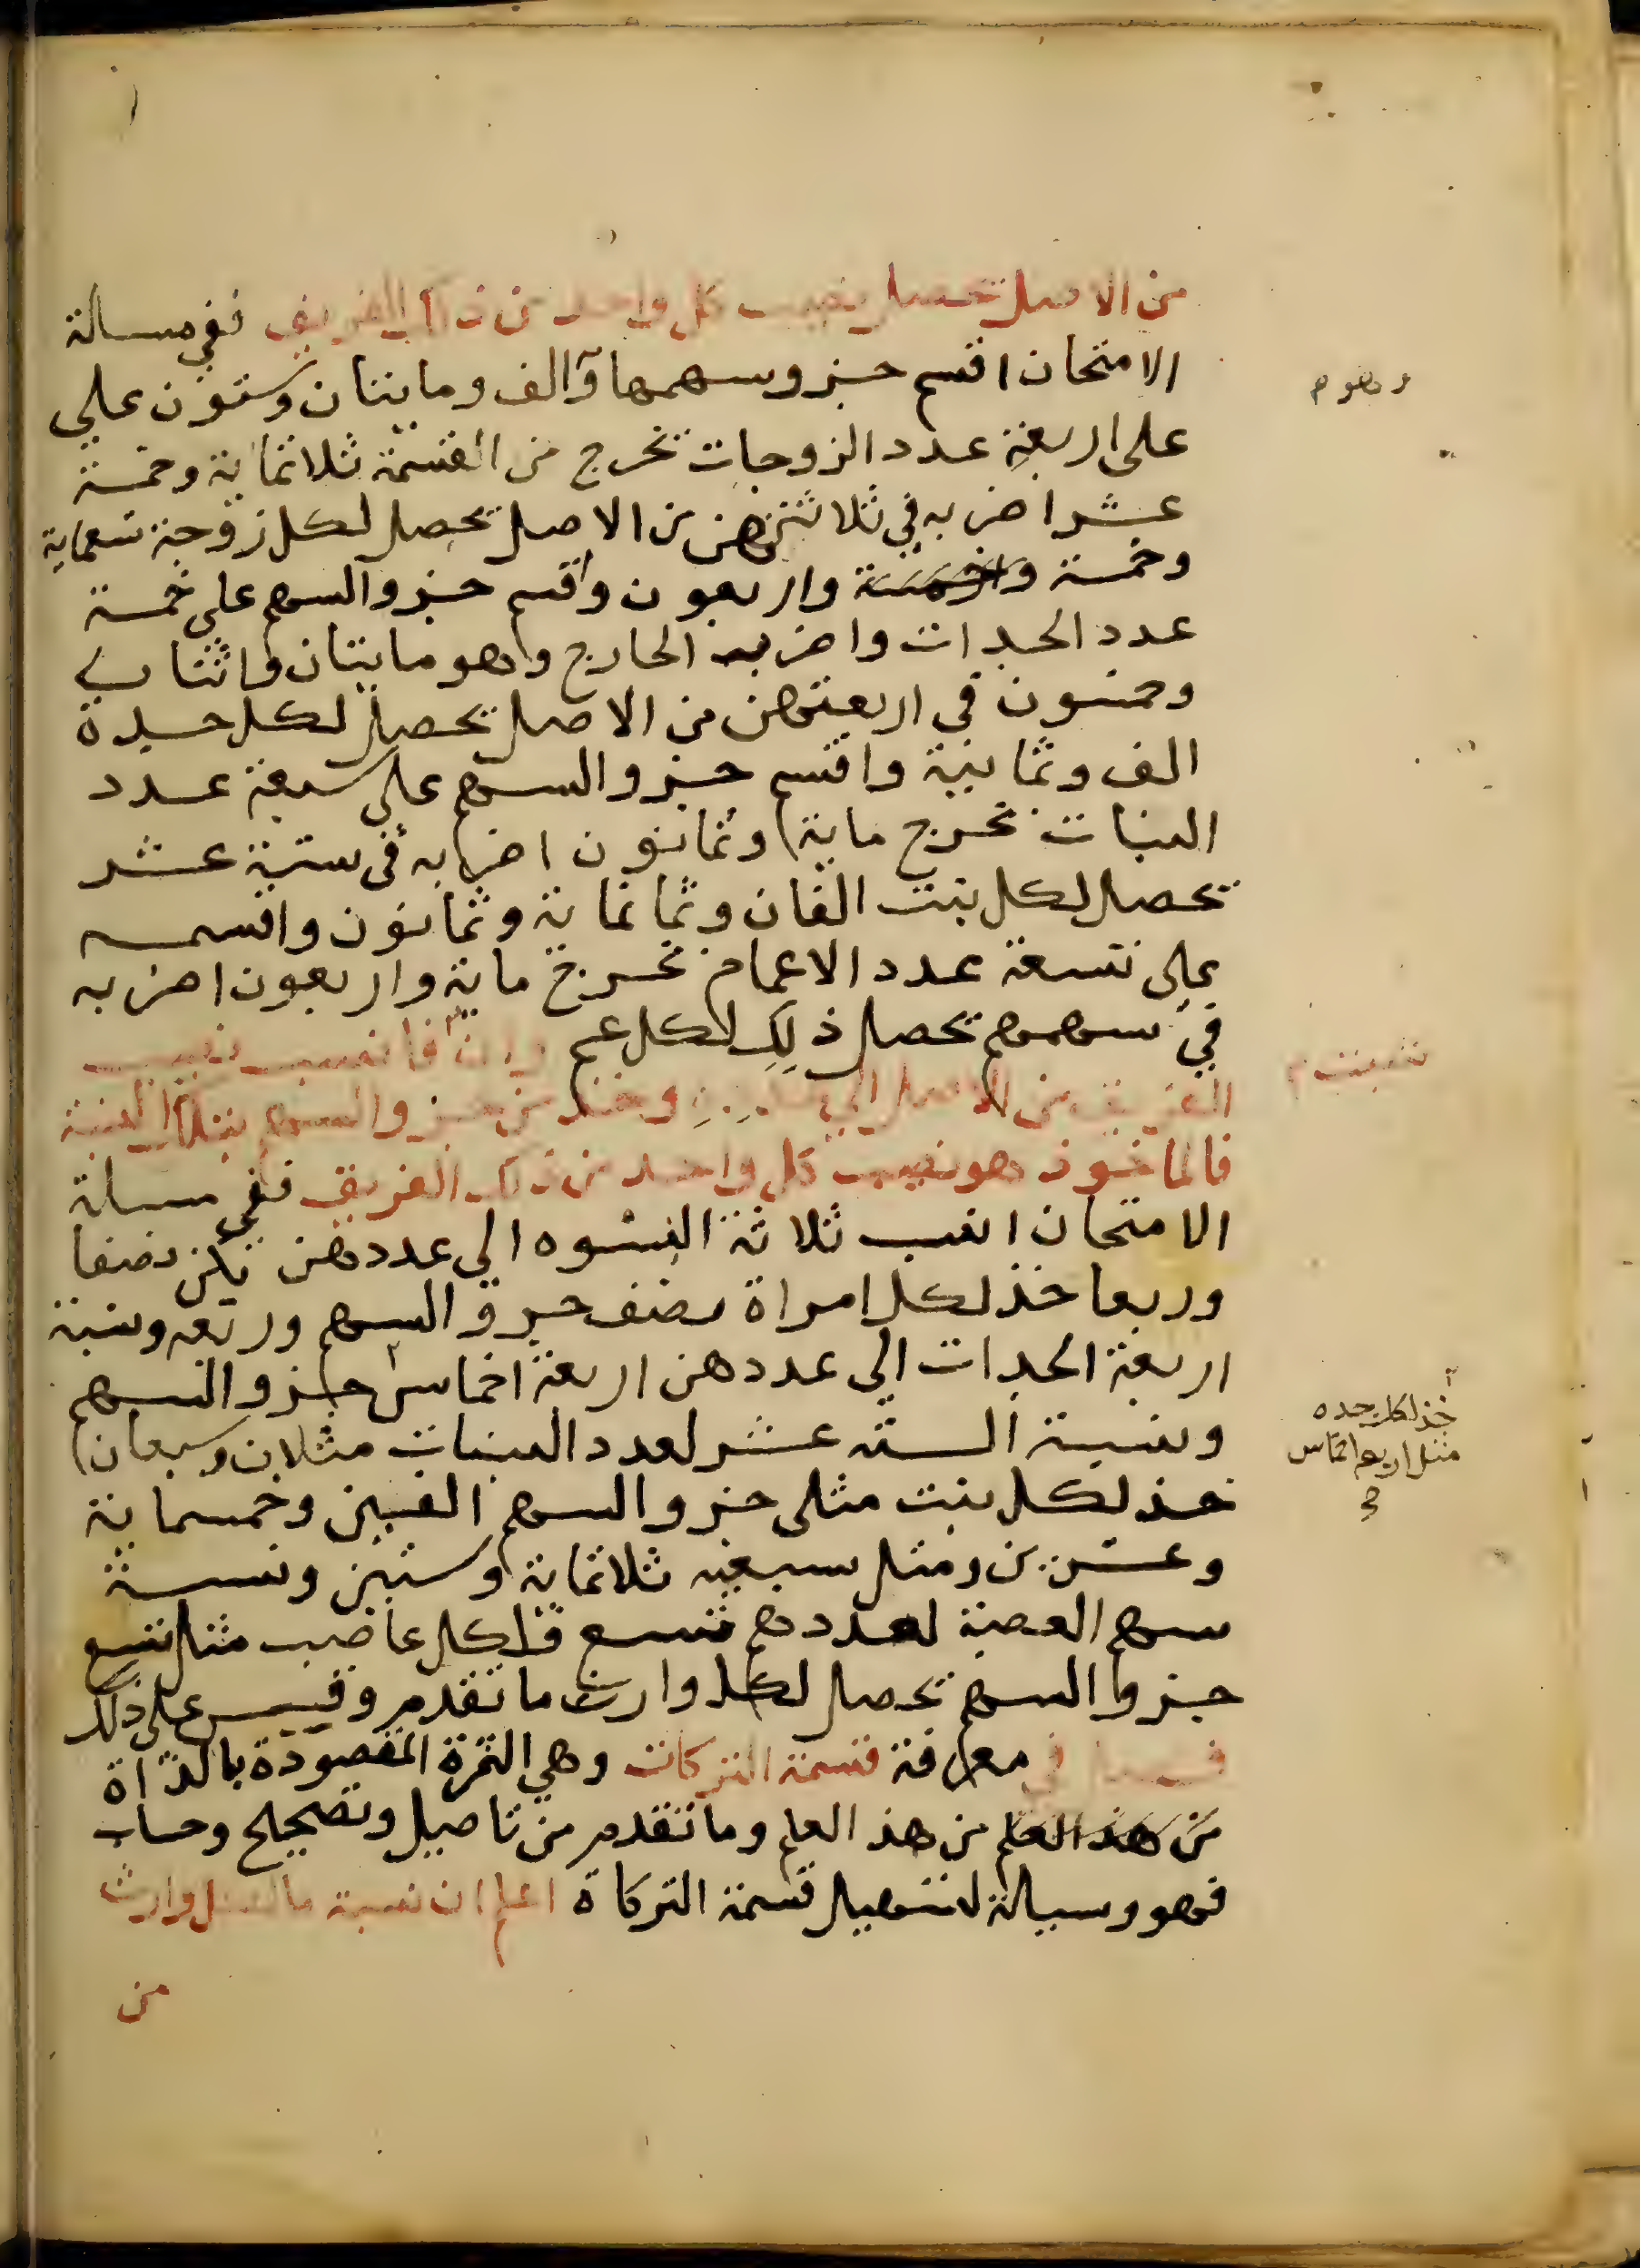 من الاصل تحصل نصيب كل واحد من ذلك الفريق ففي مسالة
الامتحان اقسم جزو سهمها وآلف ومايتان وستون علي
على اربعة عدد الزوجات تخرج من القسمة ثلاثماية وخمسة
عشر اضربه في ثلاثتهن من الاصل تحصل لكل زوجة تسعماية
وخمسة واربعون واقسم جزو السهم على خمسة
عدد الجدات واضرب الخارج وهو مايتان واثنتان
وخمسون في اربعتهن من الاصل تحصل لكل جدة
الف وثمانية واقسم جزو السهم على سبعة عدد
البنات تخرج ماية وثمانون اضربه في ستة عشر
تحصل لكل بنت الفان وثمانماية وثمانون واقسمه
على تسعة عدد الاعمام تخرج ماية واربعون اضربه
في سهمهم تحصل ذلك لكل عم وان فانسب نصيب
الفريق من الاصل الى وخذ من جزو السهم بتلك النسبة
فالماخوذ هو نصيب كل واحد من ذلك الفريق ففي مسالة
الامتحان انسب ثلاثة النسوه الي عددهن تكن نصفا
وربعا خذ لكل امراة نصف جزو السهم وربعه ونسبة
اربعة الجدات الي عددهن اربعة اخماس جزو السهم
ونسبة الستة عشر لعدد البنات مثلان وسبعان
خذ لكل بنت مثلى جزو السهم الفين وخمسماية
وعشرين ومثل سبعيه ثلاثماية وستين ونسبة
سهم العصبة لعددهم تسع فلكل عاصب مثل تسع
جزو السهم تحصل لكل وارث ما تقدم وقيس على ذلك
فصل في معرفة قسمة التركات وهي الثمرة المقصودة بالذاة
من هذ العلم من هذ العلم وما تقدم من تاصيل وتصحيح وحساب
فهو وسيالة لتسهيل قسمة التركاة اعلم ان نسبة ما لكل وارث
من
وهو م
خذ لكل جده
مثل اربع اخماس